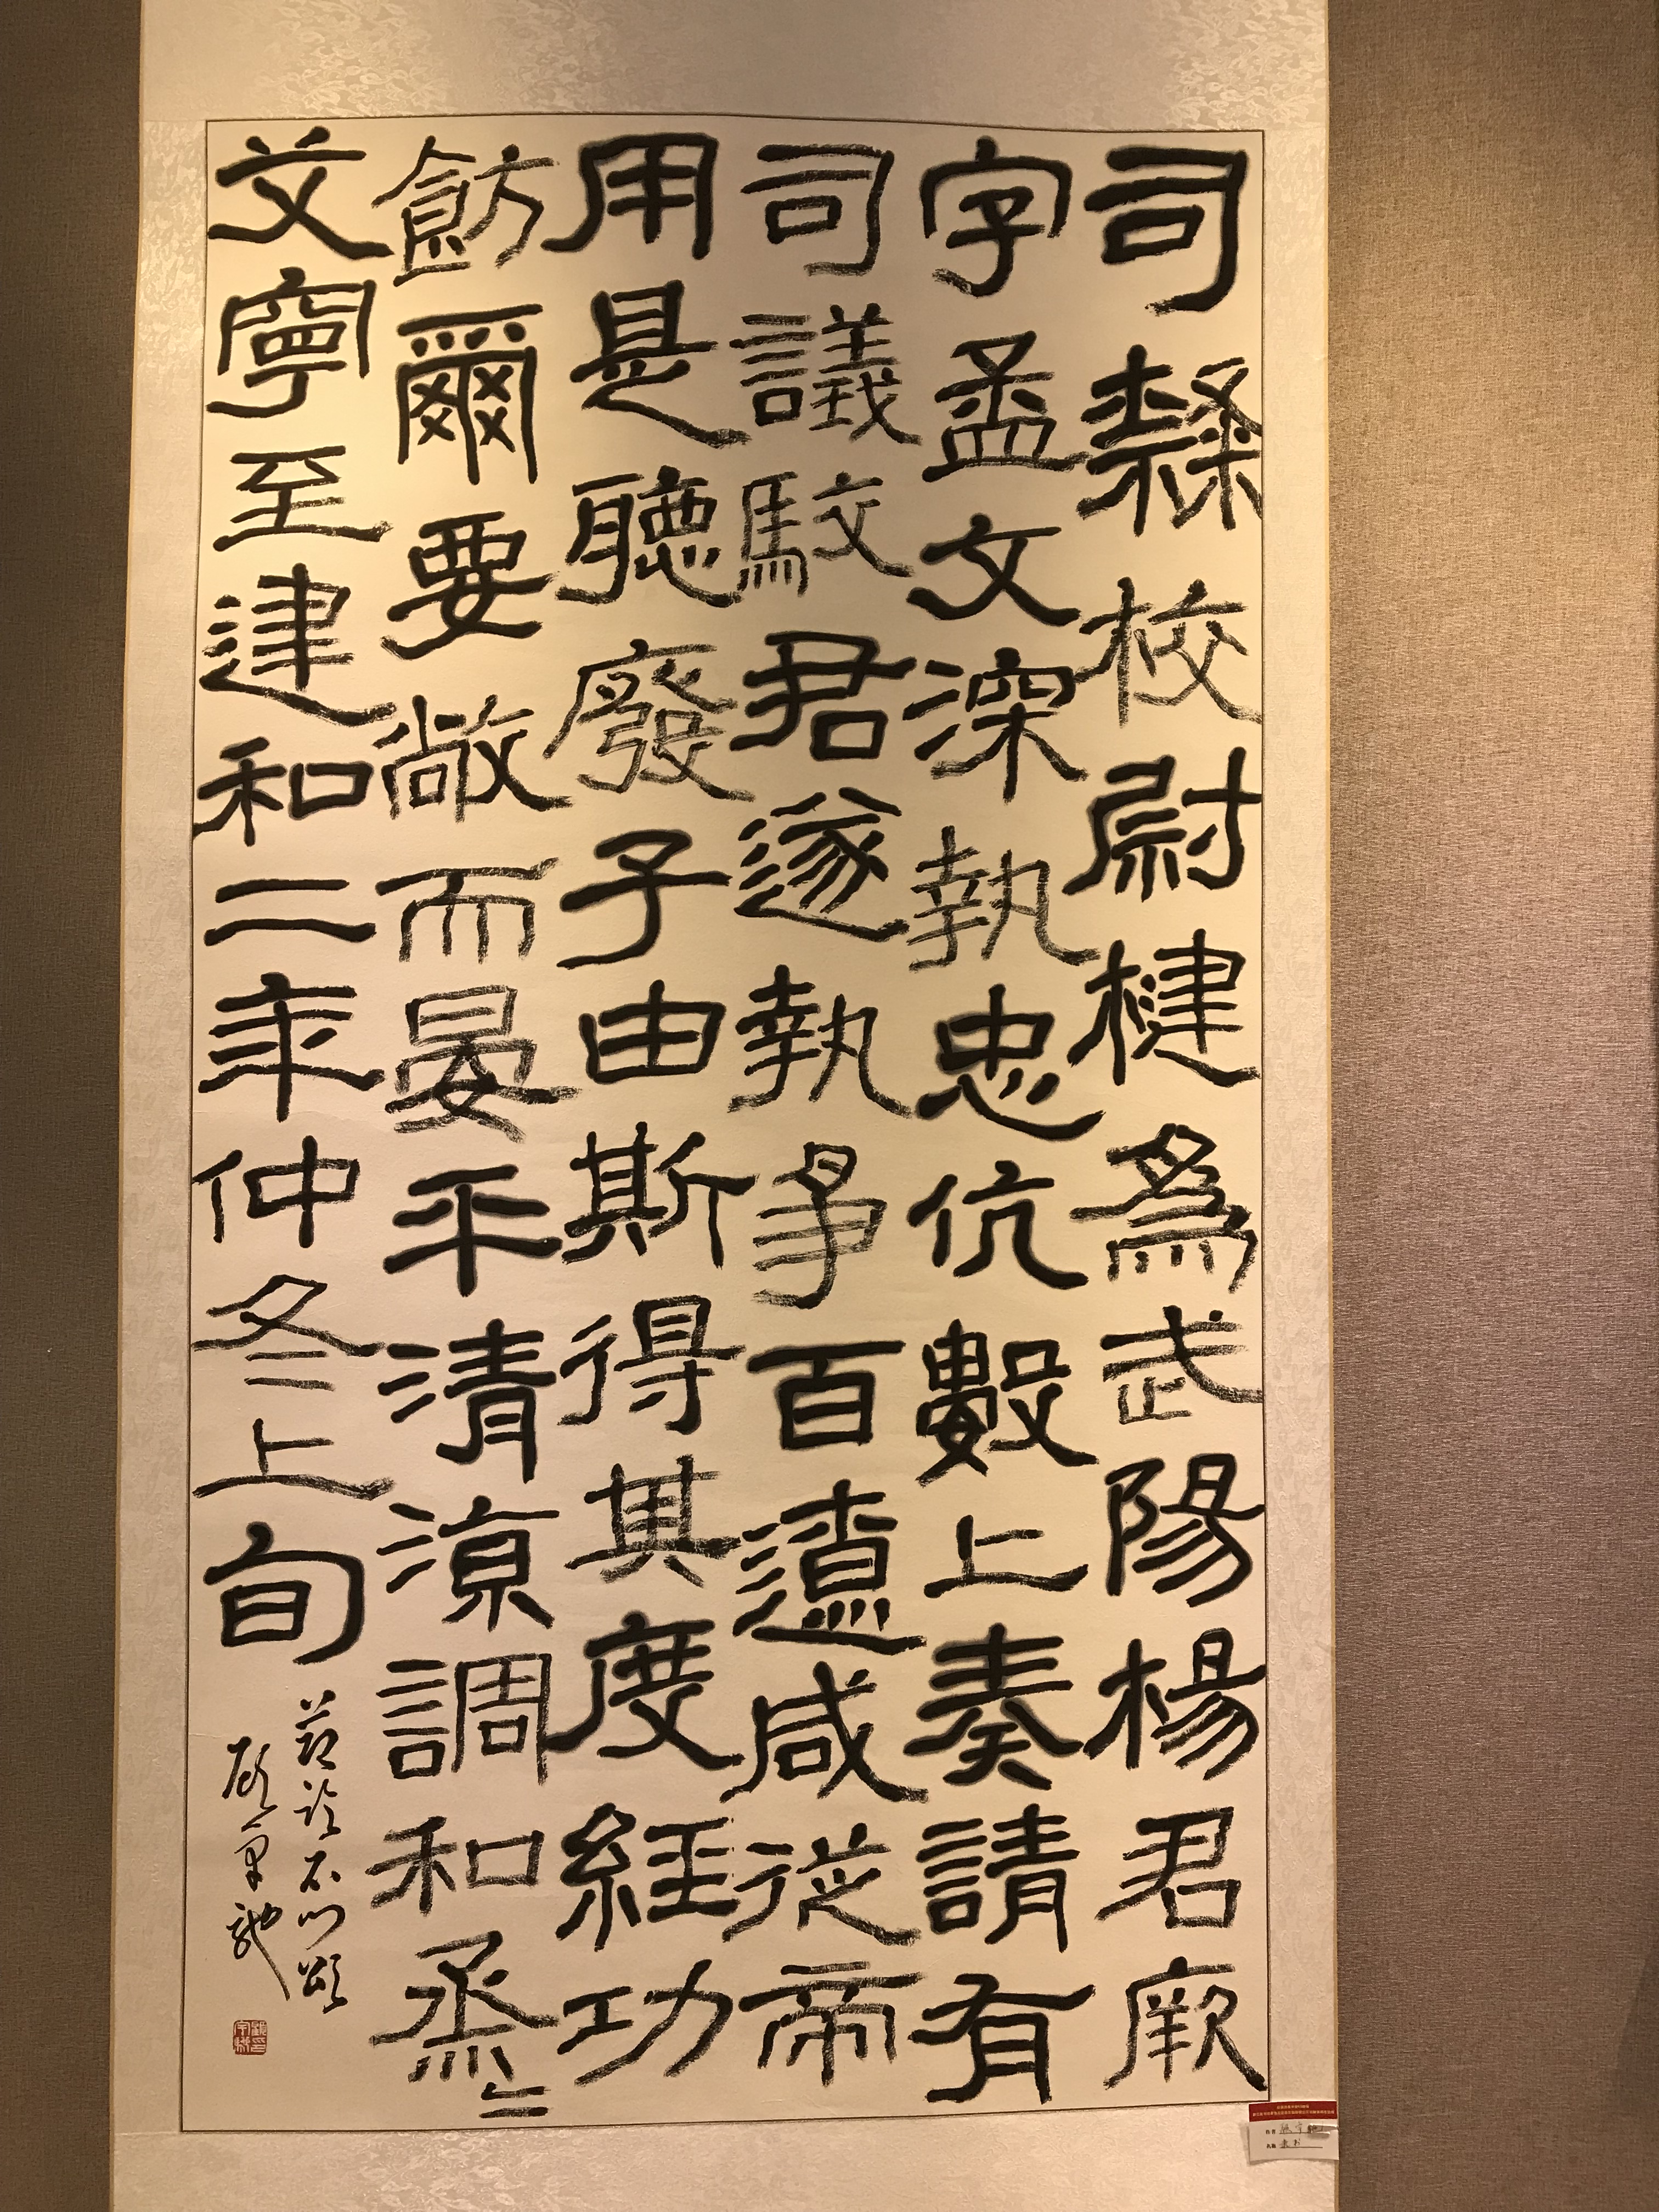 司隸校尉楗為武陽楊君厥
字孟文深執忠伉數上奏請有
司議駮君遂執爭百遼咸從帝
用是聽廢子由斯得其度經功
飭爾要敞而晏平清涼調和烝〻
艾寧至建和二年仲冬上旬
節臨石門頌